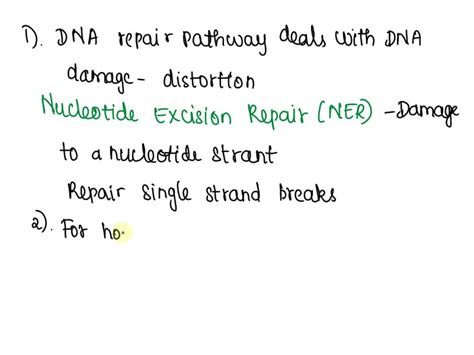 1). DNA repair pathway deals with DNA
damage - distortion
Nucleotide Excision Repair (NER) - Damage
to a nucleotide strant
Repair single strand breaks
2). For ho